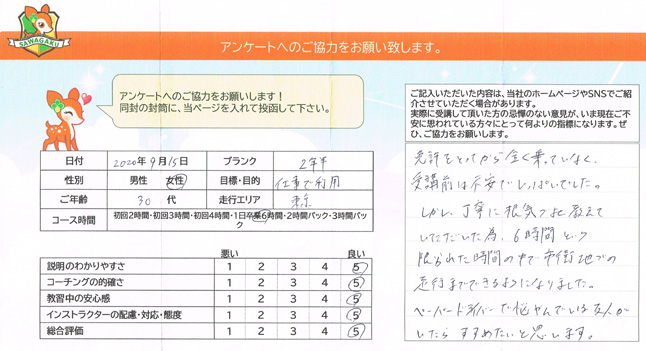 SAWAGAKU
アンケートへのご協力をお願い致します。
アンケートへのご協力をお願いします!
同封の封筒に、当ページを入れて投函して下さい。
日付 2020年9月15日 ブランク 2年半
性別 男性 女性 目標・目的 仕事で利用
ご年齢 30代 走行エリア 東京
コース時間 初回2時間・初回3時間・初回4時間・1日卒業6時間・2時間パック・3時間パック
悪い 良い
説明のわかりやすさ 1 2 3 4 5
コーチングの的確さ 1 2 3 4 5
教習中の安心感 1 2 3 4 5
インストラクターの配慮・対応・態度 1 2 3 4 5
総合評価 1 2 3 4 5
ご記入いただいた内容は、当社のホームページやSNSでご紹
介させていただく場合があります。
実際に受講して頂いた方の忌憚のない意見が、いま現在ご不
安に思われている方々にとって何よりの指標になります。ぜ
ひ、ご協力をお願いします。
免許をとってから全く乗っていなく、
受講前は不安でいっぱいでした。
しかし、丁寧に根気よく教えて
いただいた為、6時間という
限られた時間の中で市街地での
走行までできるようになりました。
ペーパードライバーで悩んでいる友人が
いたらすすめたいと思います。